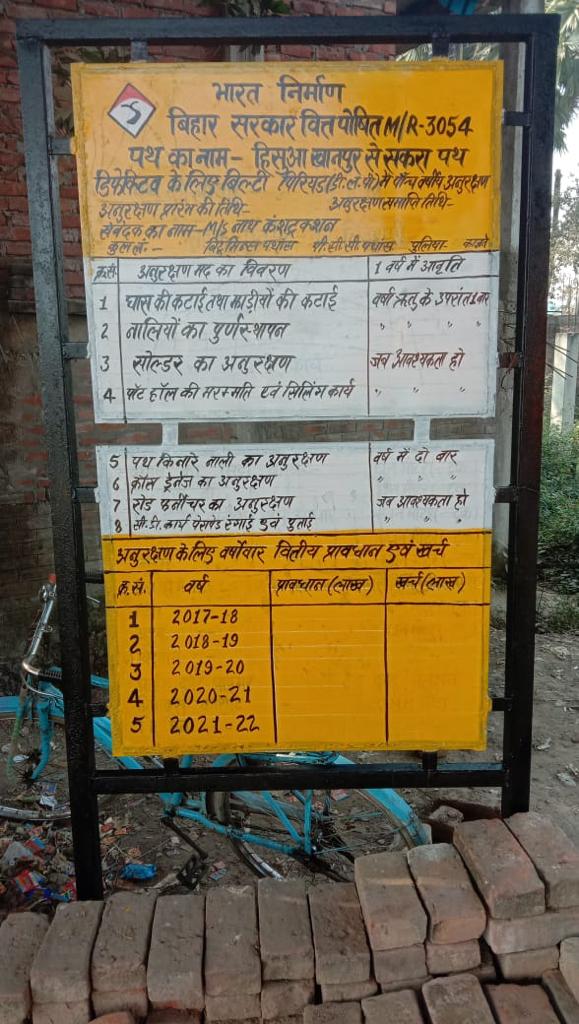 भारत निर्माण
बिहार सरकार वित्त पोषित M/R-3054
पथ का नाम - हिसुआ खानपुर से सकरा पथ
डिफेक्टिव के लिए बिल्टी पिरियड (डी.ल.पी) में पाँच वर्षीय अनुरक्षण
अनुरक्षण प्रारंभ की तिथि- अनुरक्षण समाप्ति तिथि-
संवेदक का नाम - M/S नाथ कंशट्रक्शन
कुल लं.- पी.सी.सी पथांस पुलिया-
क्र.सं. अनुरक्षण मद का विवरण 1 वर्ष में आवृति
1 घास की कटाई तथा झाड़ीयों की कटाई वर्षा ऋतु के उपरांत 1 बार
2 नालियों का पुर्नस्थापन " " "
3 सोल्डर का अनुरक्षण जब आवश्यकता हो
4 पॉट हॉल की मरम्मति एवं सिलिंग कार्य " "
5 पथ किनारे नाली का अनुरक्षण वर्ष में दो बार
6 क्रॉस ड्रेनेज का अनुरक्षण " " "
7 रोड फर्नीचर का अनुरक्षण जब आवश्यकता हो
8 सी.डी. कार्य पेरापेट रंगाई एवं पुताई " " "
अनुरक्षण के लिए वर्षोवार वितीय प्रावधान एवं खर्च
क्र.सं. वर्ष प्रावधान (लाख) खर्च (लाख)
1 2017-18
2 2018-19
3 2019-20
4 2020-21
5 2021-22